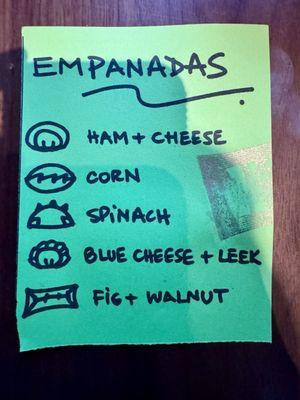 EMPANADAS
HAM + CHEESE
CORN
SPINACH
BLUE CHEESE + LEEK
FIG + WALNUT